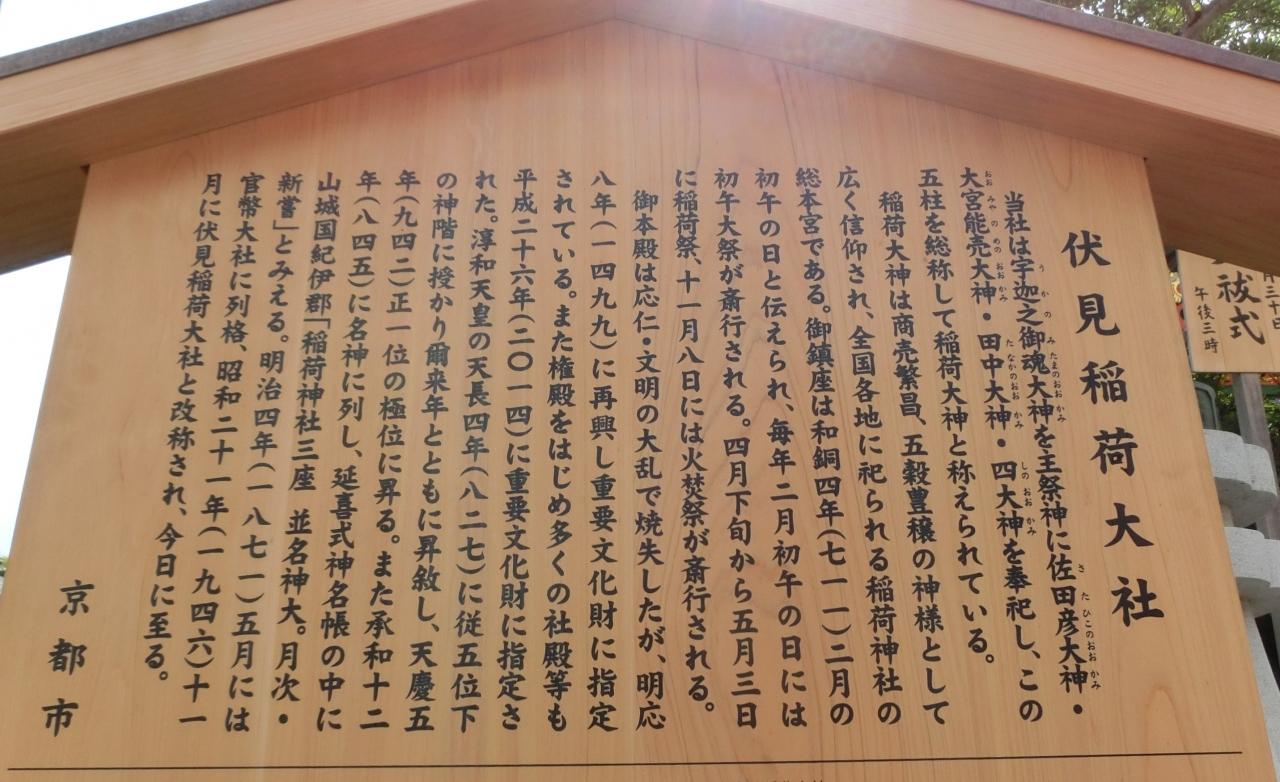 伏見稲荷大社
当社は宇迦之御魂大神を主祭神に佐田彦大神・
大宮能売大神・田中大神・四大神を奉祀し、この
五柱を総称して稲荷大神と称えられている。
稲荷大神は商売繁昌、五穀豊穣の神様として
広く信仰され、全国各地に祀られる稲荷神社の
総本宮である。御鎮座は和銅四年(七一一)二月の
初午の日と伝えられ、毎年二月初午の日には
初午大祭が斎行される。四月下旬から五月三日
に稲荷祭、十一月八日には火焚祭が斎行される。
御本殿は応仁・文明の大乱で焼失したが、明応
八年(一四九九)に再興し重要文化財に指定
されている。また権殿をはじめ多くの社殿等も
平成二十六年(二〇一四)に重要文化財に指定さ
れた。淳和天皇の天長四年(八二七)に従五位下
の神階に授かり爾来年とともに昇敘し、天慶五
年(九四二)正一位の極位に昇る。また承和十二
年(八四五)に名神に列し、延喜式神名帳の中に
山城国紀伊郡「稲荷神社三座 並名神大。月次・
新嘗」とみえる。明治四年(一八七一)五月には
官幣大社に列格、昭和二十一年(一九四六)十一
月に伏見稲荷大社と改称され、今日に至る。
京都市
祓式
午後三時